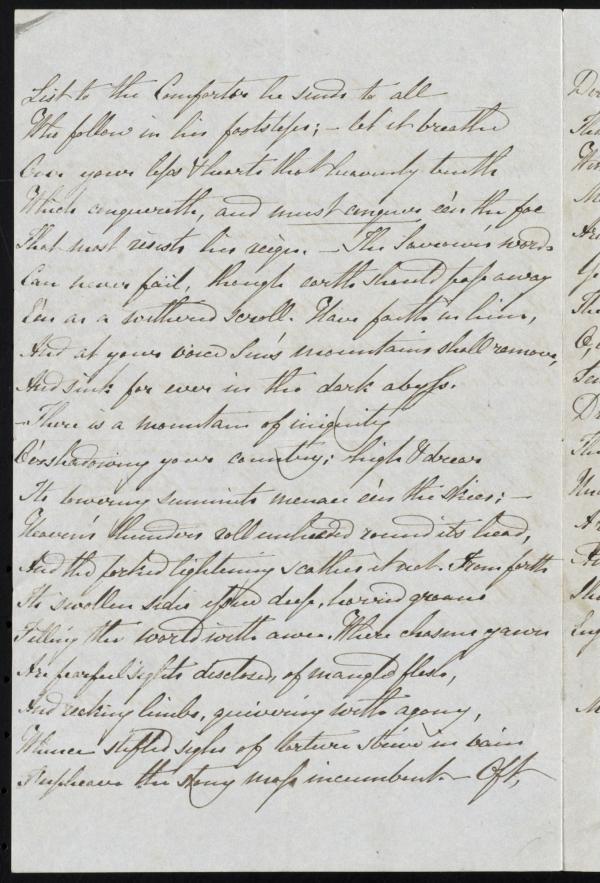 List to the Comforter he sends to all
Who follow in his footsteps; – let it breathe
Over your lips & hearts that heavenly truth
Which conquereth, and must conquer e'en the foe
That most resists his reign. – The Saviour's words
Can never fail, though earth should pass away
E'en as a withered scroll. Have faith in him,
And at your voice Sin's mountains shall remove,
And sink for ever in the dark abyss.
– There is a mountain of iniquity
O'ershadowing your country; high & drear
Its towering summits menace e'en the skies; –
Heaven's thunders roll unheeded round its head,
And the forked lightening scathes it not. From forth
Its swollen sides issue deep, horrid groans
Filling the world with awe. Where chasms yawn
Are fearful sights disclosed, of mangled flesh,
And reeking limbs, quivering with agony,
Whence stifled sighs of torture strive in vain
T'upheave the stony mass incumbent. – Oft,